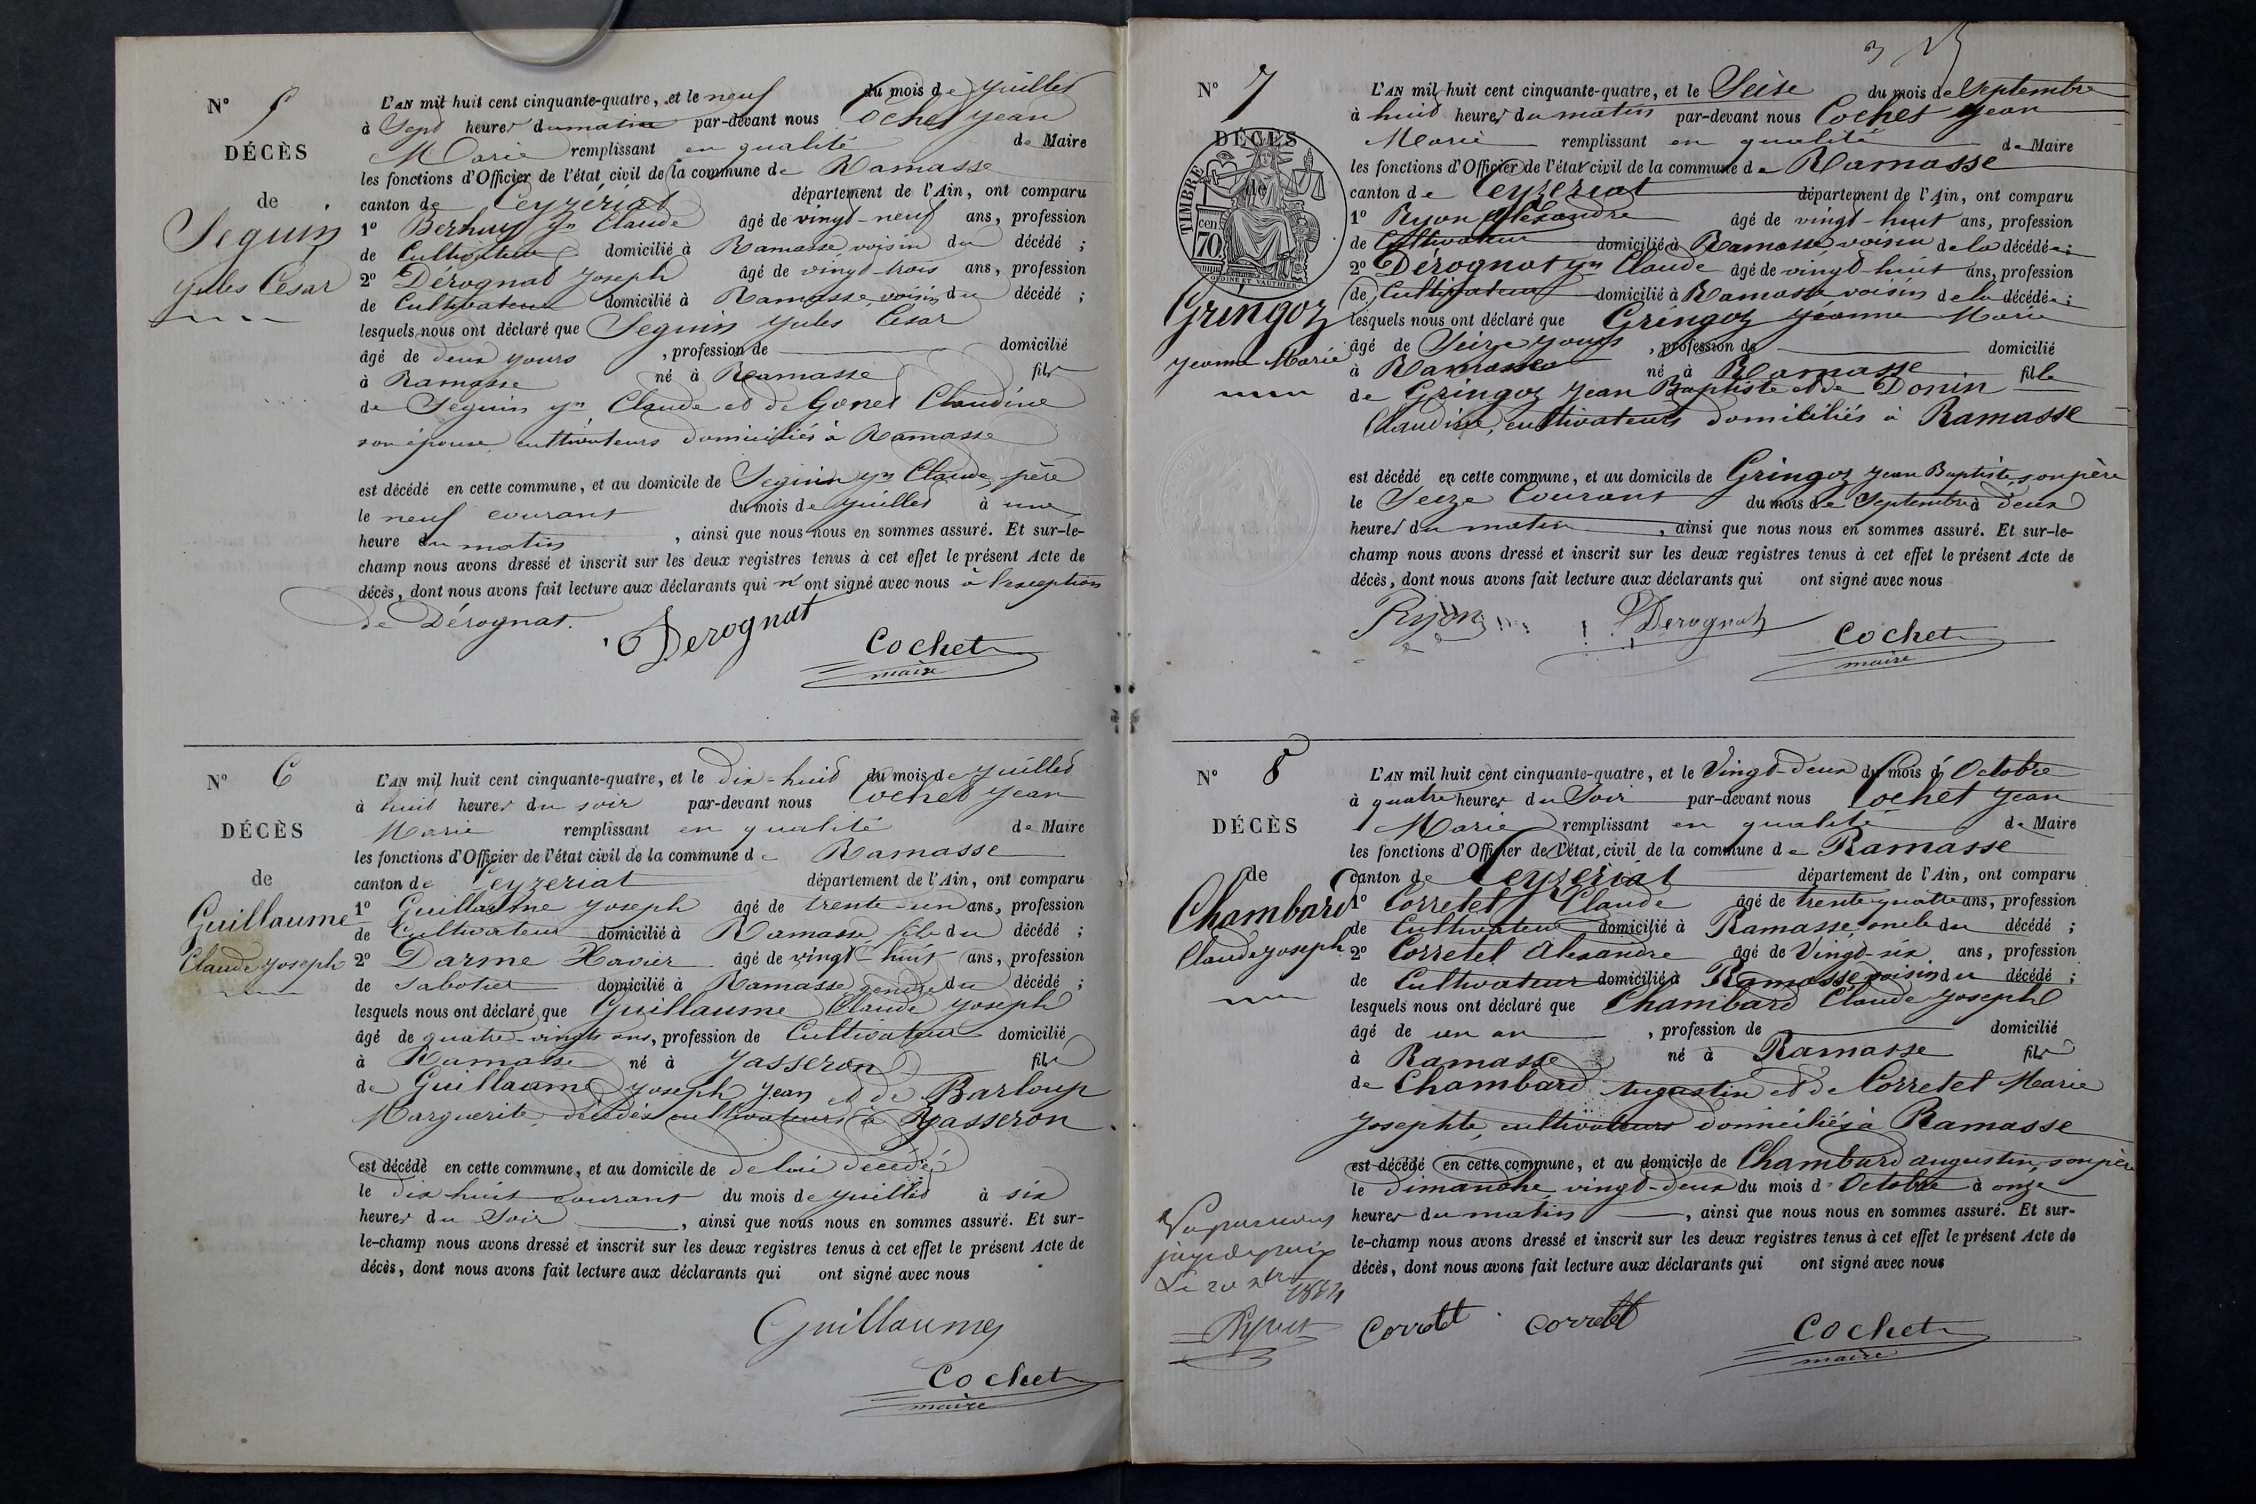 N° 5
DÉCÈS
de
Seguin
Jules César
L'AN mil huit cent cinquante-quatre, et le neuf du mois de Juillet
à Sept heures du matin par-devant nous Cochet Jean
Marie remplissant en qualité de Maire
les fonctions d'Officier de l'état civil de la commune de Ramasse
canton de Ceyzériat département de l'Ain, ont comparu
1° Berhuy Jn Claude âgé de vingt-neuf ans, profession
de Cultivateur domicilié à Ramasse voisin du décédé ;
2° Dérognat Joseph âgé de vingt-trois ans, profession
de Cultivateur domicilié à Ramasse, voisin du décédé ;
lesquels nous ont déclaré que Seguin Jules César
âgé de deux jours , profession de domicilié
à Ramasse né à Ramasse fils
de Seguin Jn Claude et de Gonet Claudine
son épouse, cultivateurs domiciliés à Ramasse
est décédé en cette commune, et au domicile de Seguin Jn Claude, père
le neuf courant du mois de Juillet à une
heure du matin , ainsi que nous nous en sommes assuré. Et sur-le-
champ nous avons dressé et inscrit sur les deux registres tenus à cet effet le présent Acte de
décès, dont nous avons fait lecture aux déclarants qui n'ont signé avec nous à l'exception
de Dérognat.
Derognat
Cochet
maire
N° 6
DÉCÈS
de
Guillaume
Claude Joseph
L'AN mil huit cent cinquante-quatre, et le dix-huit du mois de Juillet
à huit heures du soir par-devant nous Cochet Jean
Marie remplissant en qualité de Maire
les fonctions d'Officier de l'état civil de la commune de Ramasse
canton de Ceyzeriat département de l'Ain, ont comparu
1° Guillaume Joseph âgé de trente-un ans, profession
de Cultivateur domicilié à Ramasse fils du décédé ;
2° Darme Xavier âgé de vingt-huit ans, profession
de Sabotier domicilié à Ramasse gendre du décédé ;
lesquels nous ont déclaré que Guillaume Claude Joseph
âgé de quatre-vingts ans, profession de Cultivateur domicilié
à Ramasse né à Jasseron fils
de Guillaume Joseph Jean et de Barloup
Marguerite, décédés cultivateurs à Jasseron
est décédé en cette commune, et au domicile de de lui décédé
le dix huit courant du mois de Juillet à six
heures du Soir , ainsi que nous nous en sommes assuré. Et sur-
le-champ nous avons dressé et inscrit sur les deux registres tenus à cet effet le présent Acte de
décès, dont nous avons fait lecture aux déclarants qui ont signé avec nous
Guillaume
Cochet
maire
3
N° 7
DÉCÈS
de
TIMBRE
70 cen
Gringoz
Jeanne Marie
L'AN mil huit cent cinquante-quatre, et le Seise du mois de Septembre
à huit heures du matin par-devant nous Cochet Jean
Marie remplissant en qualité de Maire
les fonctions d'Officier de l'état civil de la commune de Ramasse
canton de Ceyzeriat département de l'Ain, ont comparu
1° Ryon Alexandre âgé de vingt-huit ans, profession
de Cultivateur domicilié à Ramasse voisin de la décédée ;
2° Dérognat Jn Claude âgé de vingt-huit ans, profession
de Cultivateur domicilié à Ramasse voisin de la décédée ;
lesquels nous ont déclaré que Gringoz Jeanne Marie
âgé de Seize jours , profession de domicilié
à Ramasse né à Ramasse fille
de Gringoz Jean Baptiste et de Donin
Claudine, cultivateurs domiciliés à Ramasse
est décédé en cette commune, et au domicile de Gringoz Jean Baptiste, son père
le Seize Courant du mois de Septembre à deux
heures du matin , ainsi que nous nous en sommes assuré. Et sur-le-
champ nous avons dressé et inscrit sur les deux registres tenus à cet effet le présent Acte de
décès, dont nous avons fait lecture aux déclarants qui ont signé avec nous
Ryon Derognat
Cochet
maire
N° 8
DÉCÈS
de
Chambard
Claude Joseph
L'AN mil huit cent cinquante-quatre, et le Vingt-deux du mois d'Octobre
à quatre heures du Soir par-devant nous Cochet Jean
Marie remplissant en qualité de Maire
les fonctions d'Officier de l'état civil de la commune de Ramasse
canton de Ceyzeriat département de l'Ain, ont comparu
1° Corretel Claude âgé de trente quatre ans, profession
de Cultivateur domicilié à Ramasse, oncle du décédé ;
2° Corretel Alexandre âgé de Vingt-six ans, profession
de Cultivateur domicilié à Ramasse, voisin du décédé ;
lesquels nous ont déclaré que Chambard Claude Joseph
âgé de un an , profession de domicilié
à Ramasse né à Ramasse fils
de Chambard Augustin et de Corretel Marie
Josephte, cultivateurs domiciliés à Ramasse
est décédé en cette commune, et au domicile de Chambard augustin, son père
le dimanche vingt-deux du mois d'Octobre à onze
heures du matin , ainsi que nous nous en sommes assuré. Et sur-
le-champ nous avons dressé et inscrit sur les deux registres tenus à cet effet le présent Acte de
décès, dont nous avons fait lecture aux déclarants qui ont signé avec nous
Corretel Corretel
Cochet
maire